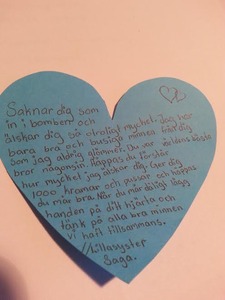 Saknar dig som
in i bomben och
älskar dig så otroligt mycket. Jag har
bara bra och busiga minnen från dig
som jag aldrig glömmer. Du var världens bästa
bror någonsin. Hoppas du förstår
hur mycket jag älskar dig. Ger dig
1000 kramar och pussar och hoppas
du mår bra. När du mår dåligt lägg
handen på ditt hjärta och
tänk på alla bra minnen
vi haft tillsammans.
//Lillasyster
Saga.